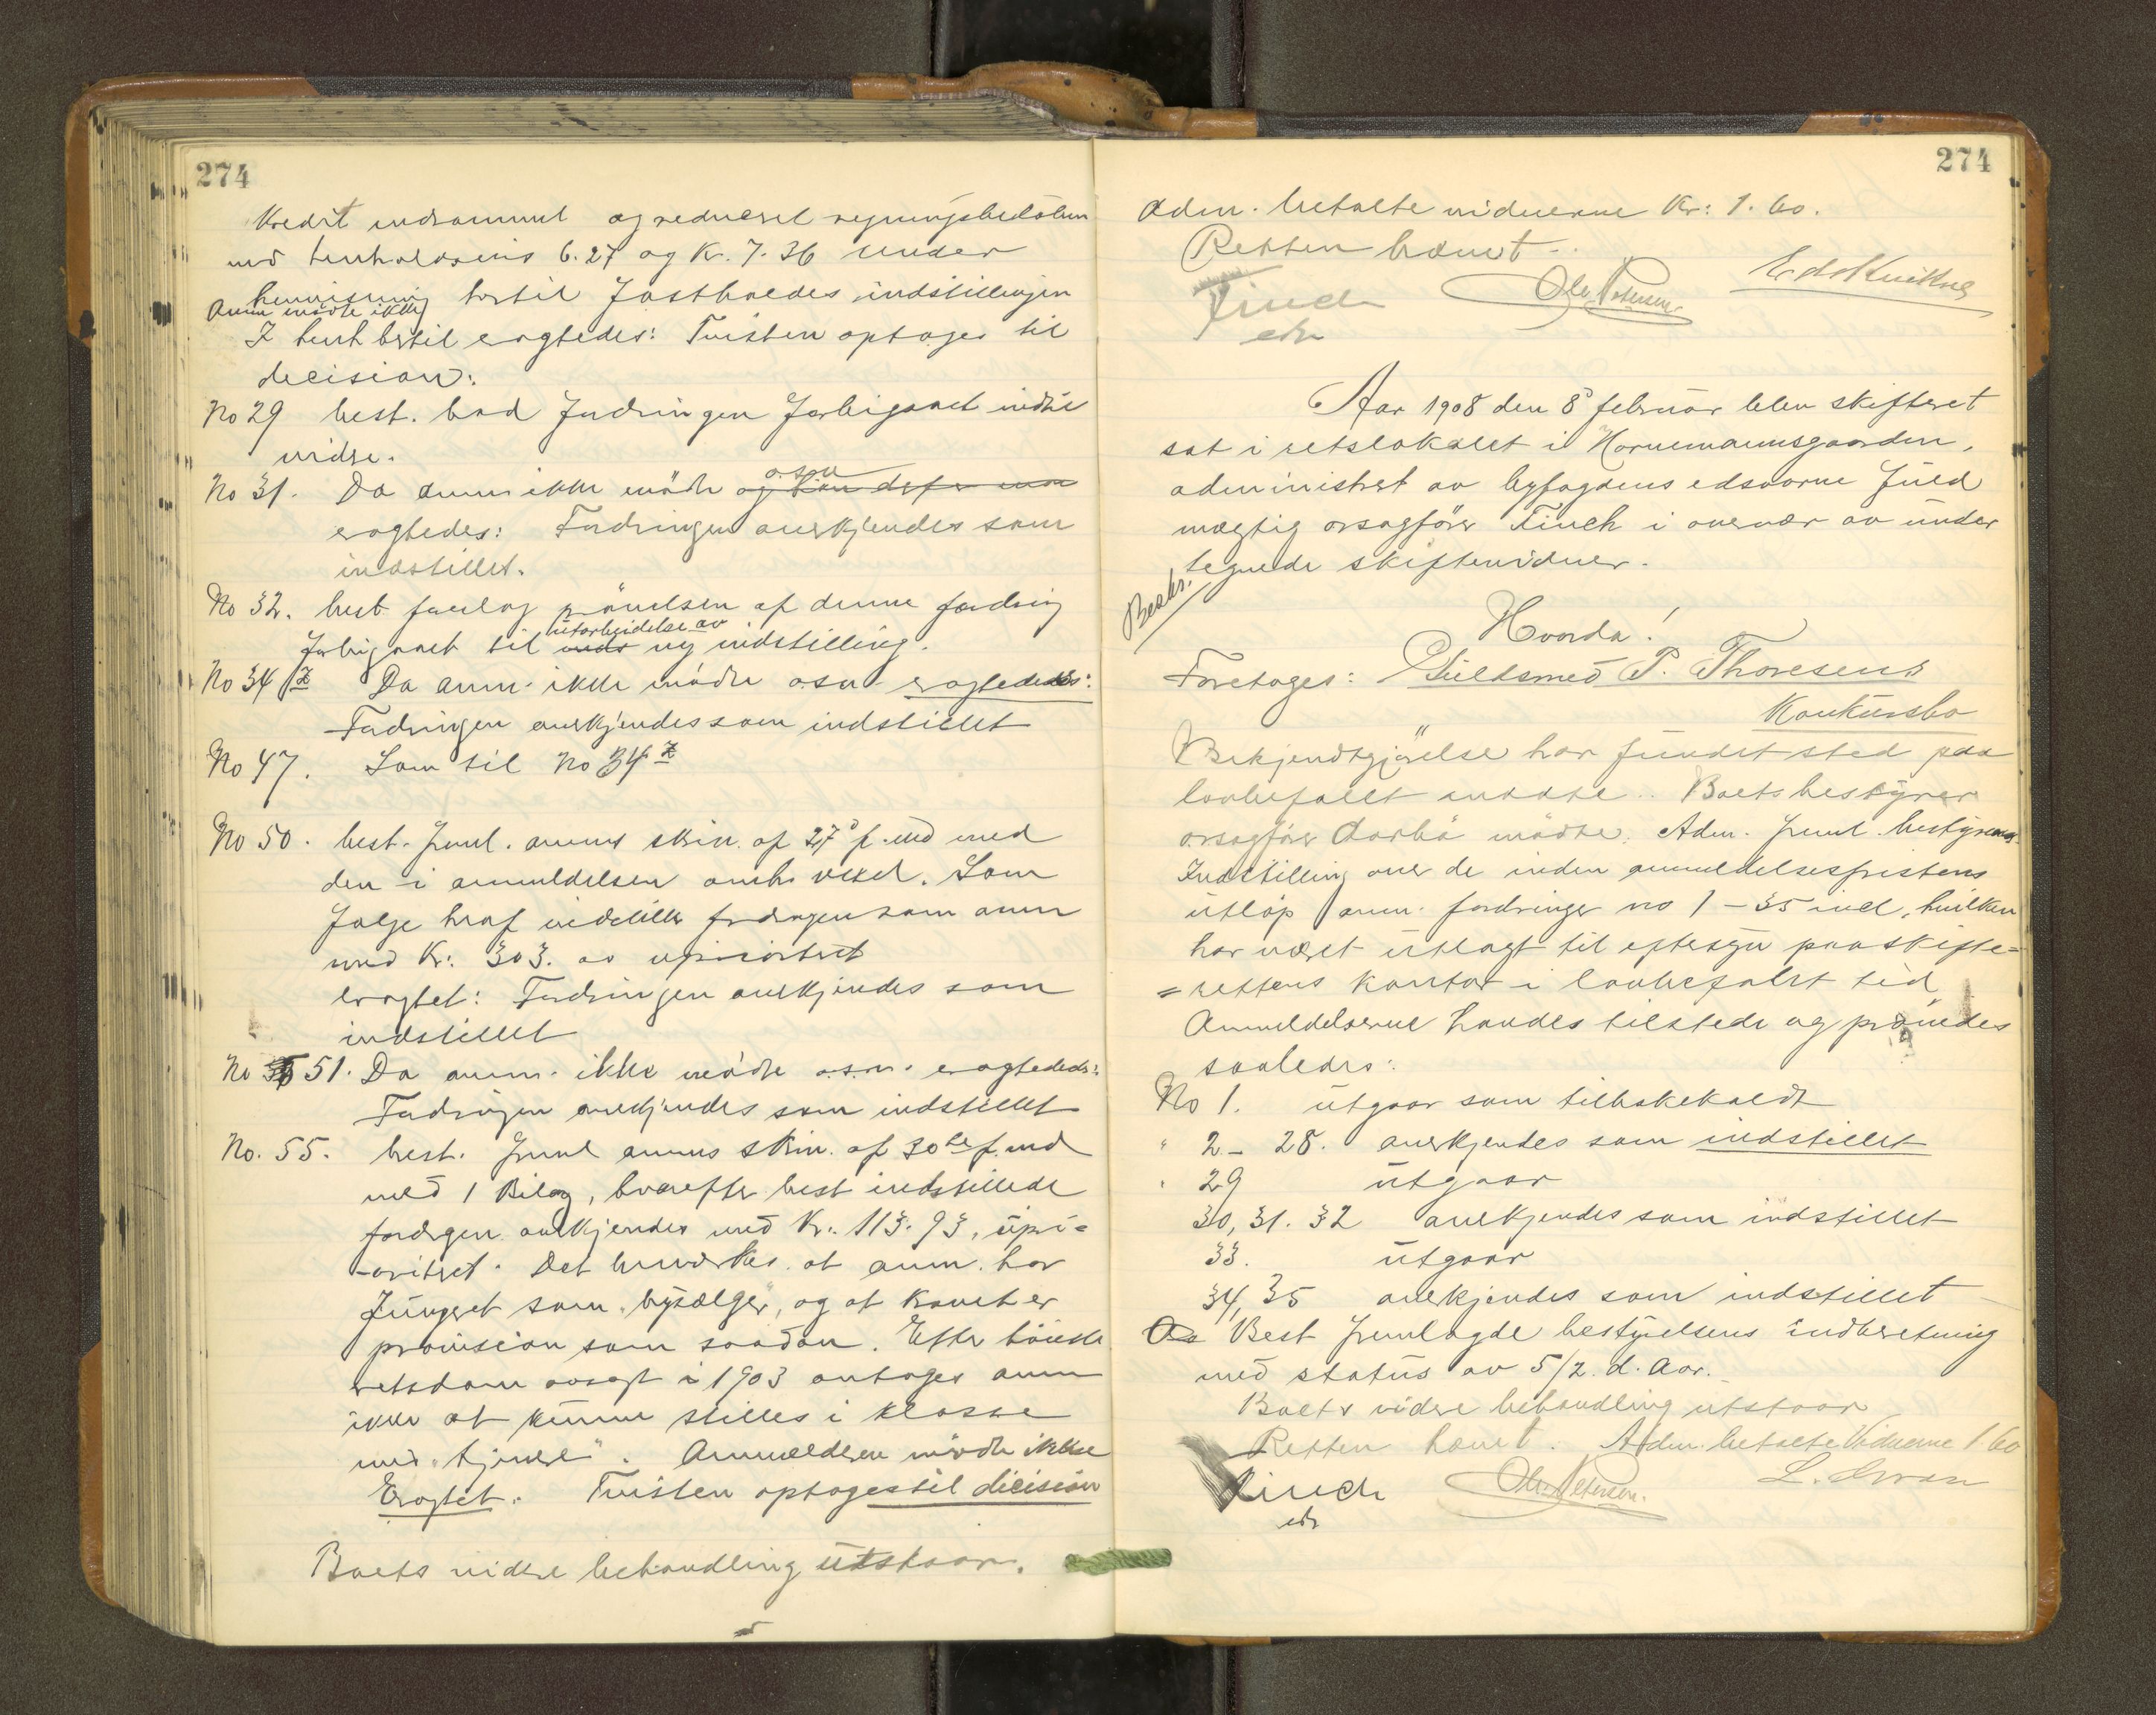 274
Kredit indrømmet og reduceret regningsbeløbene
med henholdsvis 6.27 og Kr. 7.36 under
henvisning hertil fastholdes indstillingen
Anm mødte ikke
I henh hertil eragtedes: Tvisten optages til
decision:
No 29 best. bad fordringen forbigaaet indtil
videre.
No 31. Da anm ikke mødte o.s.v.
eragtedes: Fordringen anerkjendes som
indstillet.
No 32. best. foreslog prøvelsen af denne fordring
forbigaaet til utarbeidelse av ny indstilling.
No 34 Da anm. ikke mødte o.s.v. eragtedes:
Fordringen anerkjendes som indstillet
No 47. Som til No 34
No 50. best. freml. anms skriv. af 27' f. md med
den i anmeldelsen omh. vexel. Som
følge heraf indstilles fordringen som anm
med Kr: 303. as uprioritert
eragtet: Fordringen anerkjendes som
indstillet
No 51. Da anm. ikke mødte o.s.v. eragtedes:
Fordringen anerkjendes som indstillet
No. 55. best. freml anms skriv. af 30te f. md
med 1 Bilag, hvorefter best indstillede
fordrgen anerkjendes med Kr: 113.93, upri-
-oritert. Det bemærkes at anm. har
fungeret som "bysælger", og at kravet er
provision som saadan. Efter høieste
retsdom avsagt i 1903 antages anm
ikke at kunne stilles i klasse
med "tjenere". Anmelderen mødte ikke
Eragtet: Tvisten optages til dicision
Boets videre behandling utstaar.
274
Adm. betalte vidnerne Kr: 1.60.
Retten hævet.
Finch
eds
Ole Petersen
Aar 1908 den 8' februar blev skifteret
sat i retslokalet i Hornemannsgaarden,
administret av byfogdens edsvorne fuld
mægtig orsagfører Finch i overvær av under
tegnede skiftevidner.
Beskr.
Hvorda!
Foretages: Guldsmed P. Thoresens
Konkursbo
Bekjendtgjørelse har fundet sted paa
lovbefalt maate. Boets bestyrer
orsagfører Aarbø mødte. Adm. freml. bestyrerens
Indstilling over de inden anmeldelsesfristens
utløp anm. fordringer no 1 – 35 incl, hvilken
har været utlagt til eftersyn paa skifte=
=rettens kontor i lovbefalet tid
Anmeldelserne havdes tilstede og prøvedes
saaledes:
No 1. utgaar som tilbakekaldt
" 2 – 28. anerkjendes som indstillet
" 29 utgaar
30, 31. 32 anerkjendes som indstillet
33. utgaar
34, 35 anerkjendes som indstillet
Best fremlagde bestyrelsens indberetning
med status av 5/2 d. Aar.
Boets videre behandling utstaar
Retten hævet. Adm. betalte Vidnerne 1 60
Finch
eds
Ole Petersen.